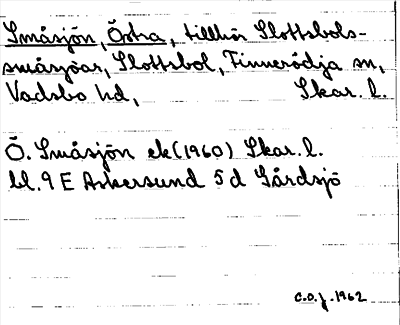 Småsjön, Östra, tillhör Slottsbols-
småsjöar, Slottsbol, Finnerödja sn,
Vadsbo hd, Skar. l.
Ö. Småsjön ek (1960) Skar. l.
bl. 9 E Askersund 5 d Gårdsjö
C.O.J. 1962